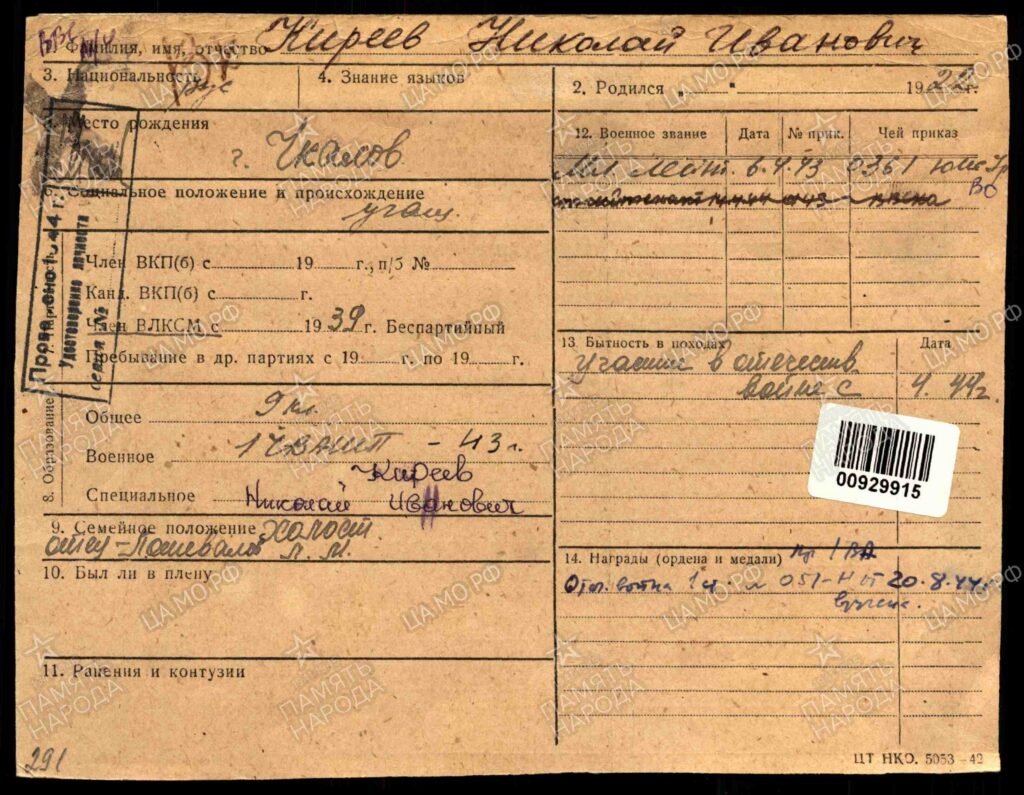 ВВС
Фамилия, имя, отчество Киреев Николай Иванович
3. Национальность рус
4. Знание языков
2. Родился „ " 1922 г.
Место рождения
г. Чкалов
6. Социальное положение и происхождение
учащ.
Член ВКП(б) с 19 г., п/б №
Канд. ВКП(б) с г.
Член ВЛКСМ с 1939 г. Беспартийный
Пребывание в др. партиях с 19 г. по 19 г.
Проверено 1944 г.
Удостоверение личности
серия №
8. Образование
Общее 9 кл.
Военное 1 ЧВАШП - 43 г.
Киреев
Специальное Николай Иванович
9. Семейное положение Холост
отец -
10. Был ли в плену
11. Ранения и контузии
291
12. Военное звание Дата № прик. Чей приказ
Мл. лейт. 6.4.43 0361 ЮжУр
ВО
13. Бытность в походах Дата
Участие в отечеств.
войне с 4.44 г.
00929915
14. Награды (ордена и медали) пр 1 ВА
Отеч. война 1 ст 051-Н от 20.8.44
вручена.
ЦТ НКО. 5053—42
ЦАМО.РФ
ПАМЯТЬ
НАРОДА